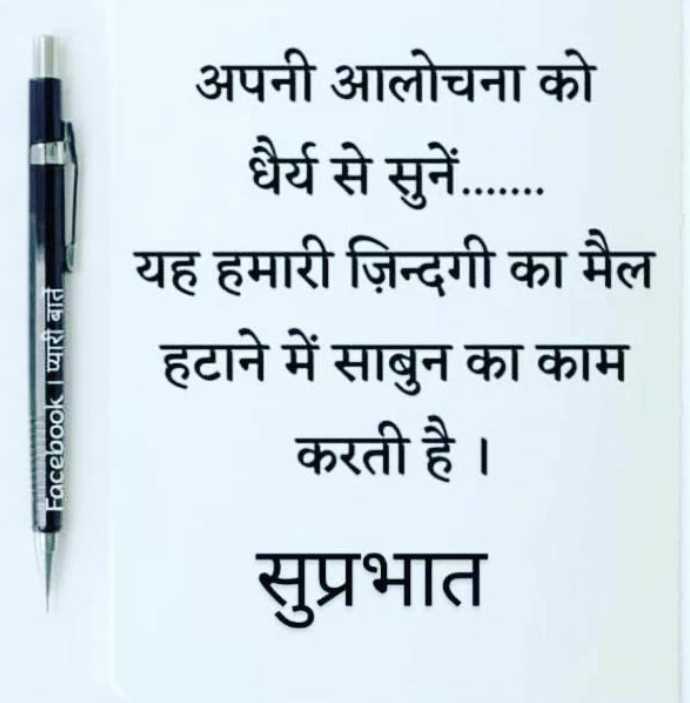 अपनी आलोचना को
धैर्य से सुनें.......
यह हमारी ज़िन्दगी का मैल
हटाने में साबुन का काम
करती है ।
सुप्रभात
Facebook । प्यारी बातें